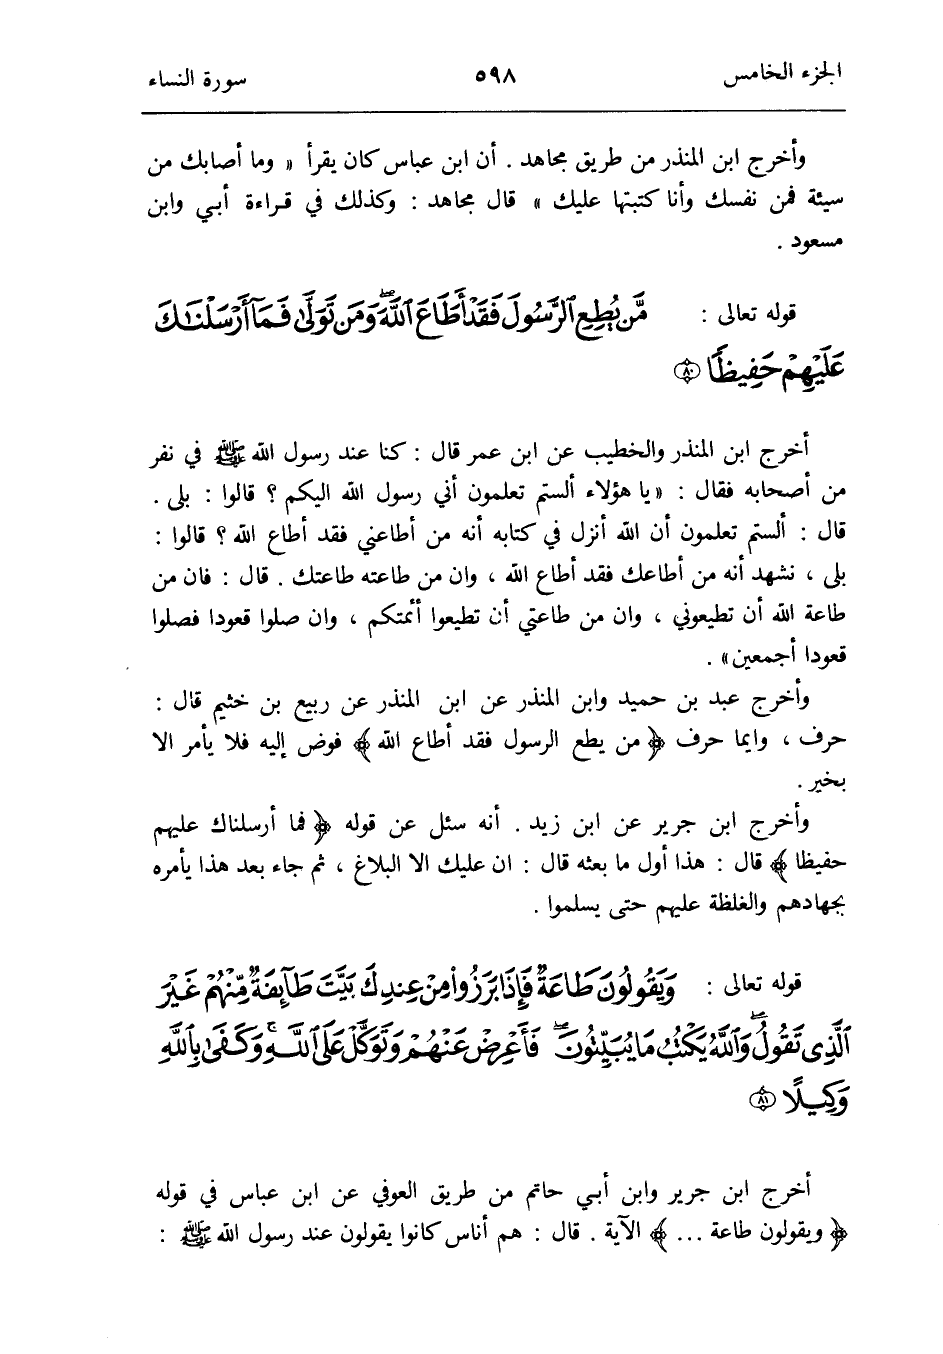 الجزء الخامس ٥٩٨ سورة النساء
وأخرج ابن المنذر من طريق مجاهد . أن ابن عباس كان يقرأ « وما أصابك من
سيئة فمن نفسك وأنا كتبتها عليك » قال مجاهد : وكذلك في قراءة أبي وابن
مسعود .
قوله تعالى : مَّن يُطِعِ ٱلرَّسُولَ فَقَدۡ أَطَاعَ ٱللَّهَۖ وَمَن تَوَلَّىٰ فَمَآ أَرۡسَلۡنَٰكَ
عَلَيۡهِمۡ حَفِيظٗا ﴿٨٠﴾
أخرج ابن المنذر والخطيب عن ابن عمر قال : كنا عند رسول الله ﷺ في نفر
من أصحابه فقال : « يا هؤلاء ألستم تعلمون أني رسول الله اليكم ؟ قالوا : بلى .
قال : ألستم تعلمون أن الله أنزل في كتابه أنه من أطاعني فقد أطاع الله ؟ قالوا :
بلى ، نشهد أنه من أطاعك فقد أطاع الله ، وان من طاعته طاعتك . قال : فان من
طاعة الله أن تطيعوني ، وان من طاعتي أن تطيعوا أئمتكم ، وان صلوا قعودا فصلوا
قعودا أجمعين » .
وأخرج عبد بن حميد وابن المنذر عن ابن المنذر عن ربيع بن خثيم قال :
حرف ، وايما حرف ﴿ من يطع الرسول فقد أطاع الله ﴾ فوض إليه فلا يأمر الا
بخير .
وأخرج ابن جرير عن ابن زيد . أنه سئل عن قوله ﴿ فما أرسلناك عليهم
حفيظا ﴾ قال : هذا أول ما بعثه قال : ان عليك الا البلاغ ، ثم جاء بعد هذا يأمره
بجهادهم والغلظة عليهم حتى يسلموا .
قوله تعالى : وَيَقُولُونَ طَاعَةٞ فَإِذَا بَرَزُواْ مِنۡ عِندِكَ بَيَّتَ طَآئِفَةٞ مِّنۡهُمۡ غَيۡرَ
ٱلَّذِى تَقُولُۖ وَٱللَّهُ يَكۡتُبُ مَا يُبَيِّتُونَۖ فَأَعۡرِضۡ عَنۡهُمۡ وَتَوَكَّلۡ عَلَى ٱللَّهِۚ وَكَفَىٰ بِٱللَّهِ
وَكِيلًا ﴿٨١﴾
أخرج ابن جرير وابن أبي حاتم من طريق العوفي عن ابن عباس في قوله
﴿ ويقولون طاعة ... ﴾ الآية . قال : هم أناس كانوا يقولون عند رسول الله ﷺ :